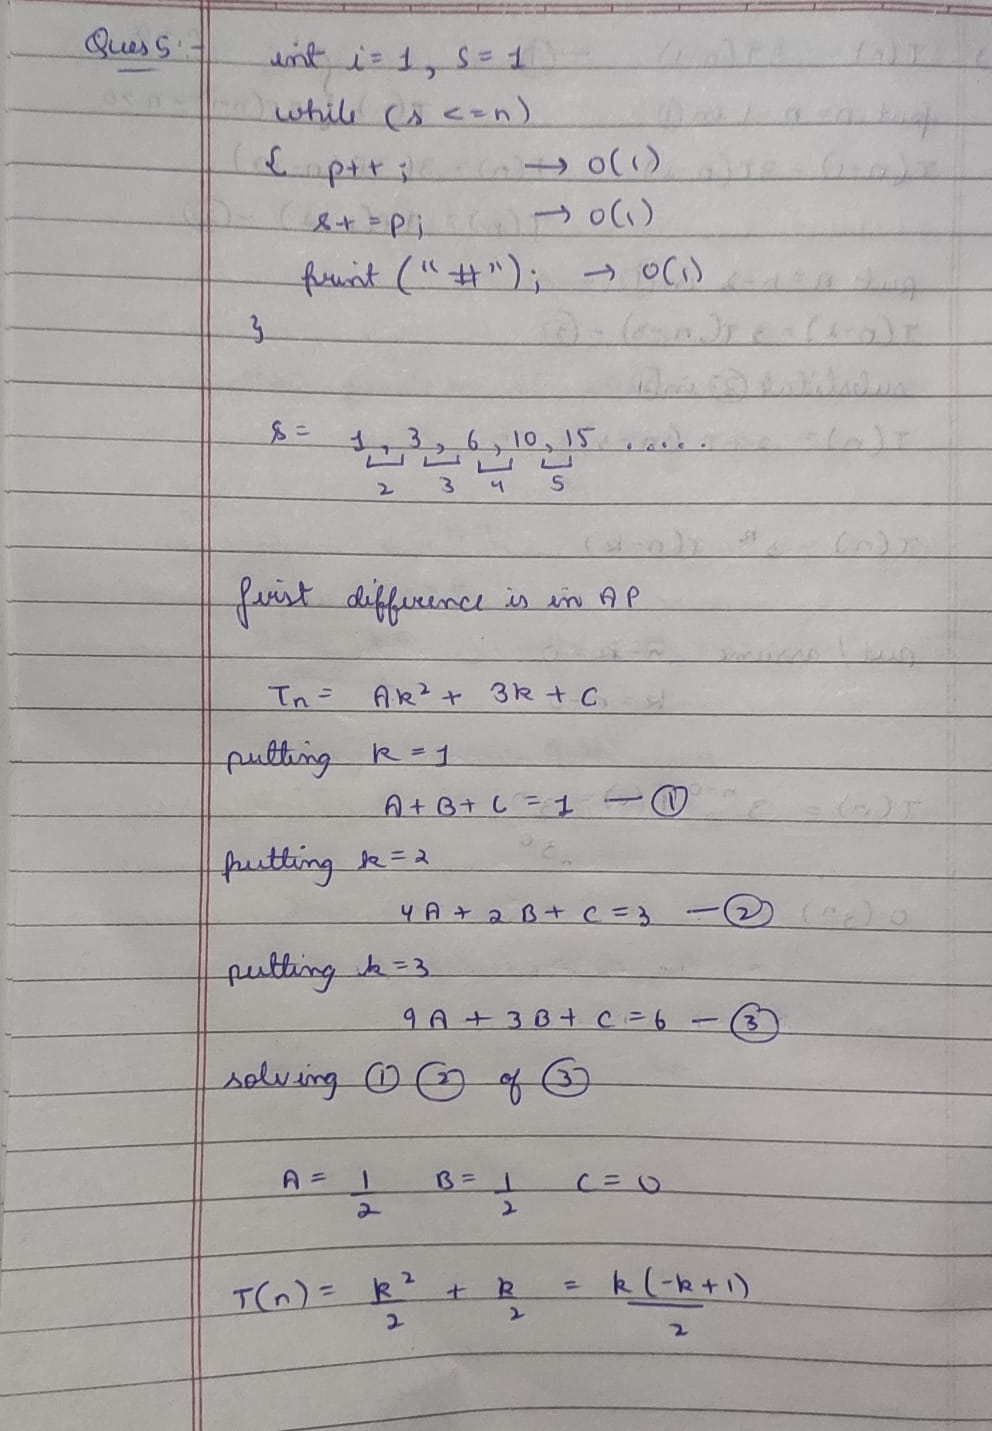 Ques 5:-
int i = 1, s = 1
while (s <= n)
{ p++; → O(1)
s+ = p; → O(1)
print ("#"); → O(1)
}
s = 1, 3, 6, 10, 15 .....
2 3 4 5
first difference is in AP
Tn = Ak² + 3k + C
putting k = 1
A + B + C = 1 — ①
putting k = 2
4A + 2B + C = 3 — ②
putting k = 3
9A + 3B + C = 6 — ③
solving ① ② of ③
A = 1/2 B = 1/2 C = 0
T(n) = k²/2 + k/2 = k(-k+1)/2